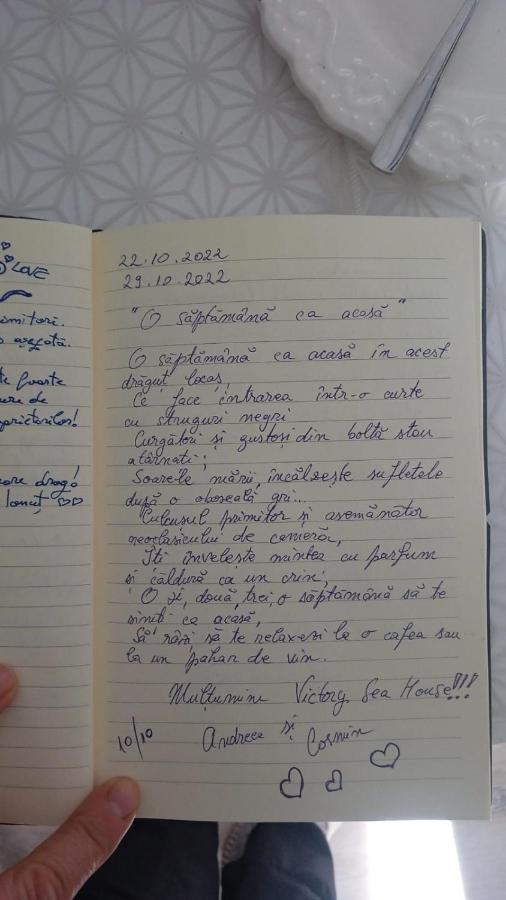 LOVE
imitori.
așezată.
te foarte
ure de
proprietarilor!
oare drag!
Ionuț
22.10.2022
29.10.2022
"O săptămână ca acasă"
O săptămână ca acasă în acest
drăguț locaș,
Ce face intrarea într-o curte
cu struguri negri
Curgători și gustoși din boltă stau
atârnați;
Soarele mării, încălzește sufletele
după o oboseală gri...
Culcușul primitor și asemănător
neoclasicului de cameră,
Îți învelește mintea cu parfum
și căldură ca un crin;
O zi, două, trei, o săptămână să te
simți ca acasă,
Să râzi, să te relaxezi la o cafea sau
la un pahar de vin.
Mulțumim Victory Sea House!!!
10/10 Andreea și Cosmin